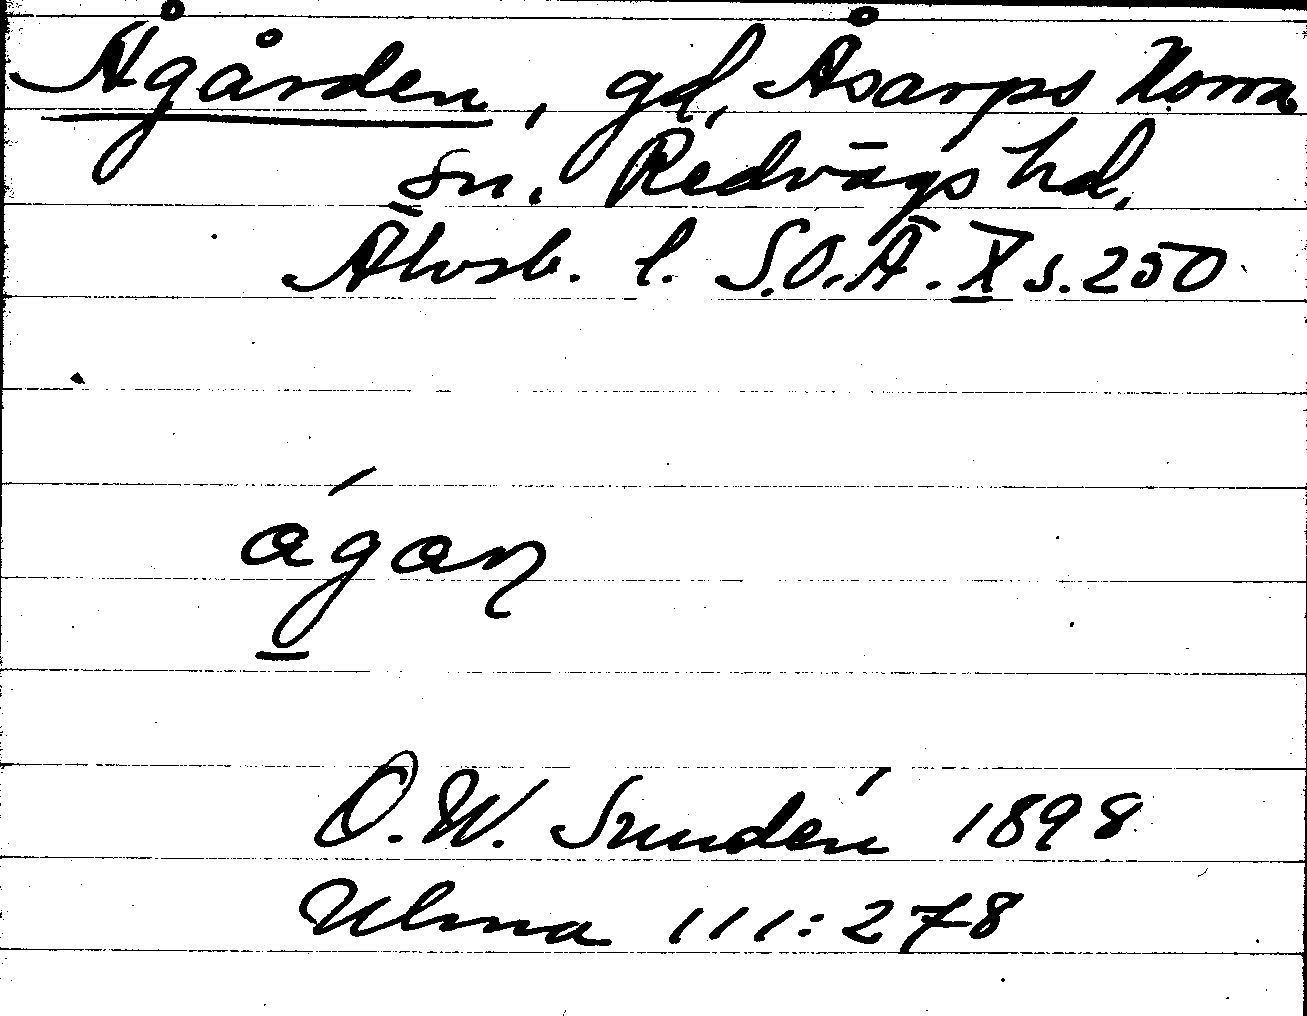 Ågården, gd, Åsarps Norra
sn. Redvägs hd,
Älvsb. l. S.O.Ä. X s. 250
ágaꞃ
O.W. Sundén 1898
Ulma 111:278